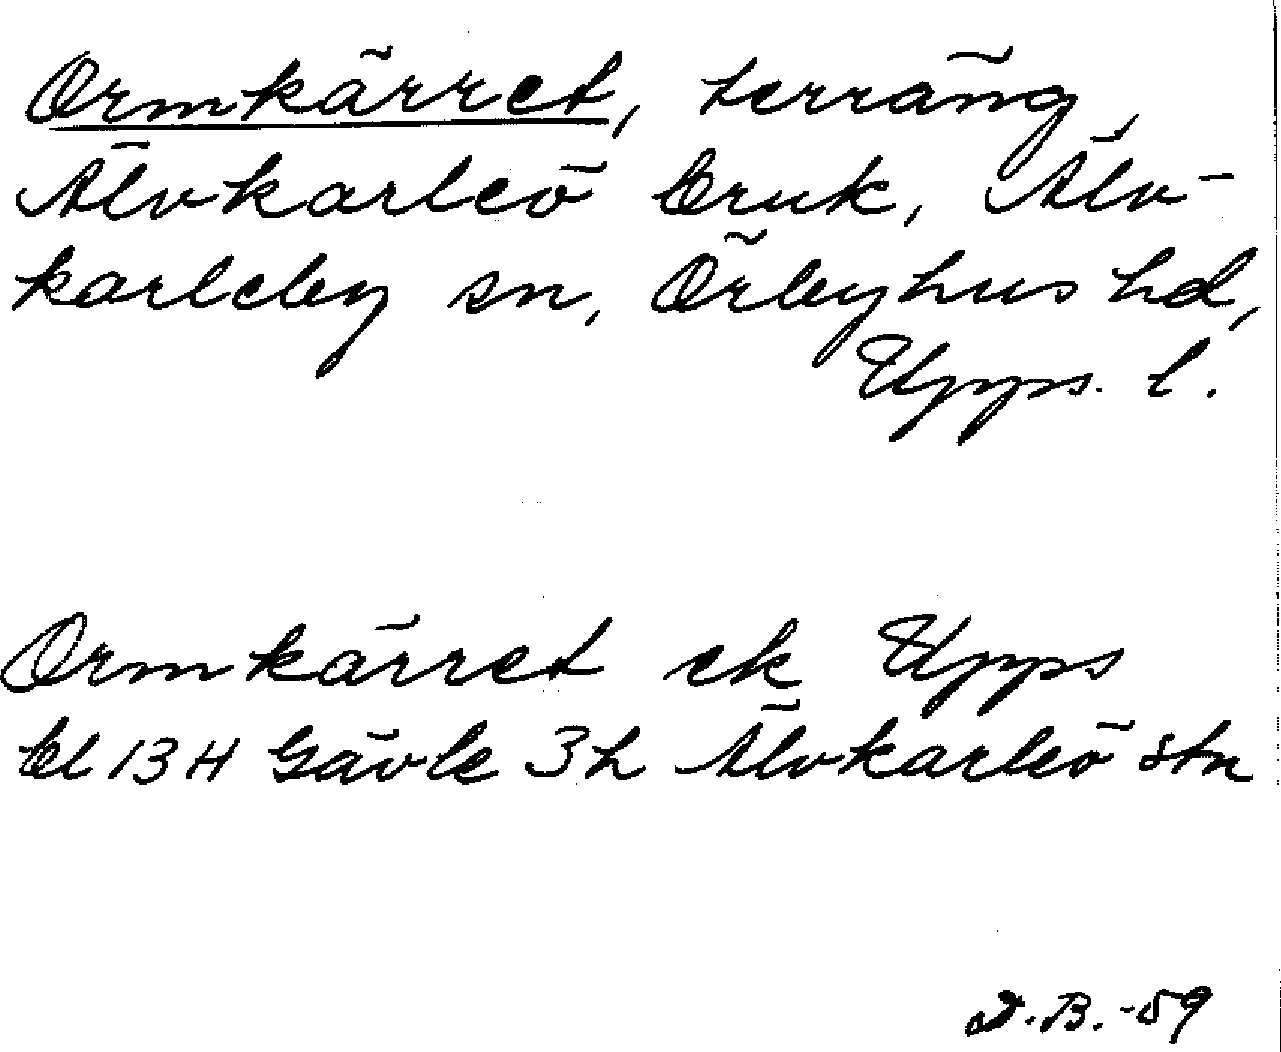 Ormkärret, terräng,
Älvkarleö bruk, Älv-
karleby sn, Örbyhus hd,
Upps. l.
Ormkärret ek Upps
bl 13 H Gävle 3 h Älvkarleö stn
B. -59